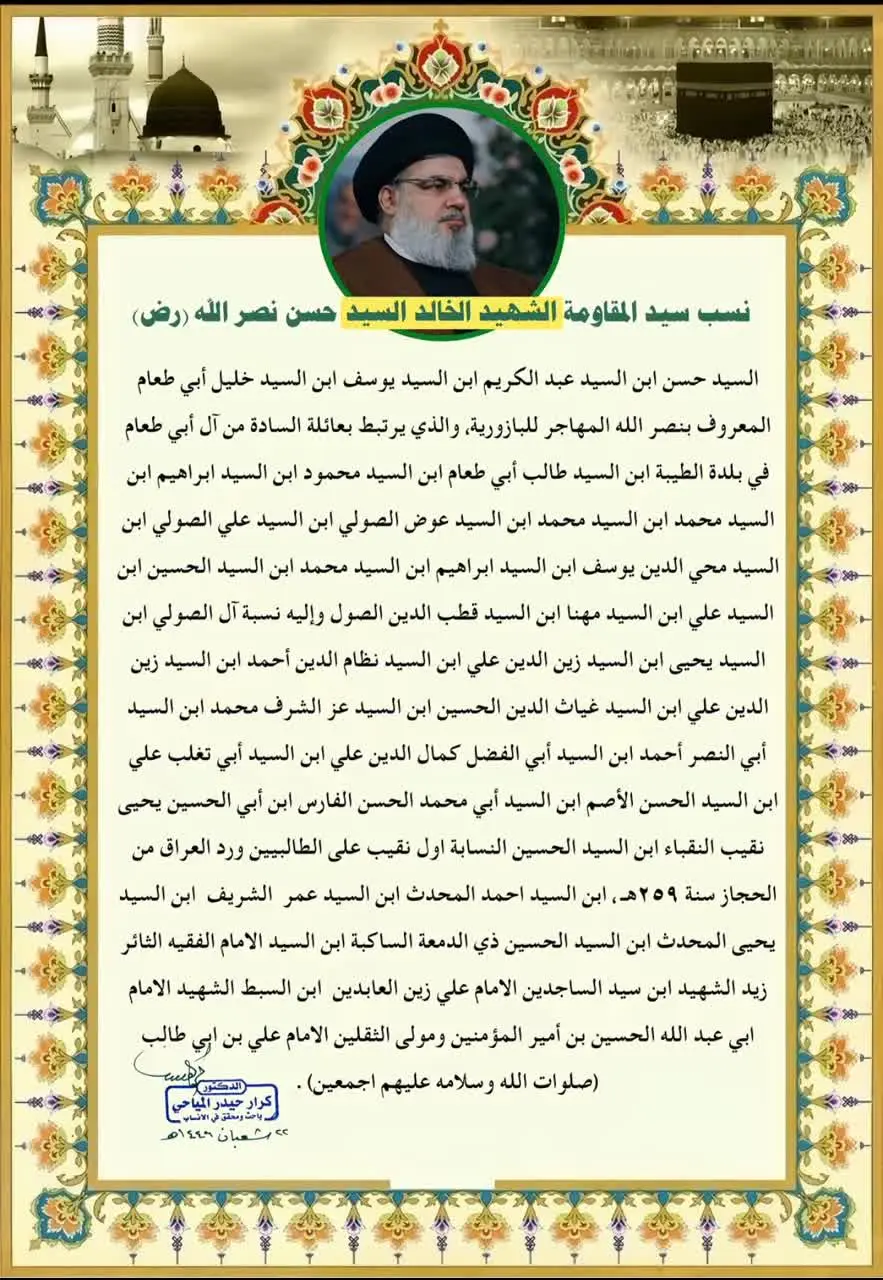 نسب سيد المقاومة الشهيد الخالد السيد حسن نصر الله (رض)
السيد حسن ابن السيد عبد الكريم ابن السيد يوسف ابن السيد خليل أبي طعام
المعروف بنصر الله المهاجر للبازورية، والذي يرتبط بعائلة السادة من آل أبي طعام
في بلدة الطيبة ابن السيد طالب أبي طعام ابن السيد محمود ابن السيد ابراهيم ابن
السيد محمد ابن السيد محمد ابن السيد عوض الصولي ابن السيد علي الصولي ابن
السيد محي الدين يوسف ابن السيد ابراهيم ابن السيد محمد ابن السيد الحسين ابن
السيد علي ابن السيد مهنا ابن السيد قطب الدين الصول وإليه نسبة آل الصولي ابن
السيد يحيى ابن السيد زين الدين علي ابن السيد نظام الدين أحمد ابن السيد زين
الدين علي ابن السيد غياث الدين الحسين ابن السيد عز الشرف محمد ابن السيد
أبي النصر أحمد ابن السيد أبي الفضل كمال الدين علي ابن السيد أبي تغلب علي
ابن السيد الحسن الأصم ابن السيد أبي محمد الحسن الفارس ابن أبي الحسين يحيى
نقيب النقباء ابن السيد الحسين النسابة اول نقيب على الطالبيين ورد العراق من
الحجاز سنة ٢٥٩هـ، ابن السيد احمد المحدث ابن السيد عمر الشريف ابن السيد
يحيى المحدث ابن السيد الحسين ذي الدمعة الساكبة ابن السيد الامام الفقيه الثائر
زيد الشهيد ابن سيد الساجدين الامام علي زين العابدين ابن السبط الشهيد الامام
ابي عبد الله الحسين بن أمير المؤمنين ومولى الثقلين الامام علي بن ابي طالب
(صلوات الله وسلامه عليهم اجمعين) .
الدكتور
كرار حيدر المياحي
باحث ومحقق في الانساب
٢٢ شعبان ١٤٤٦هـ